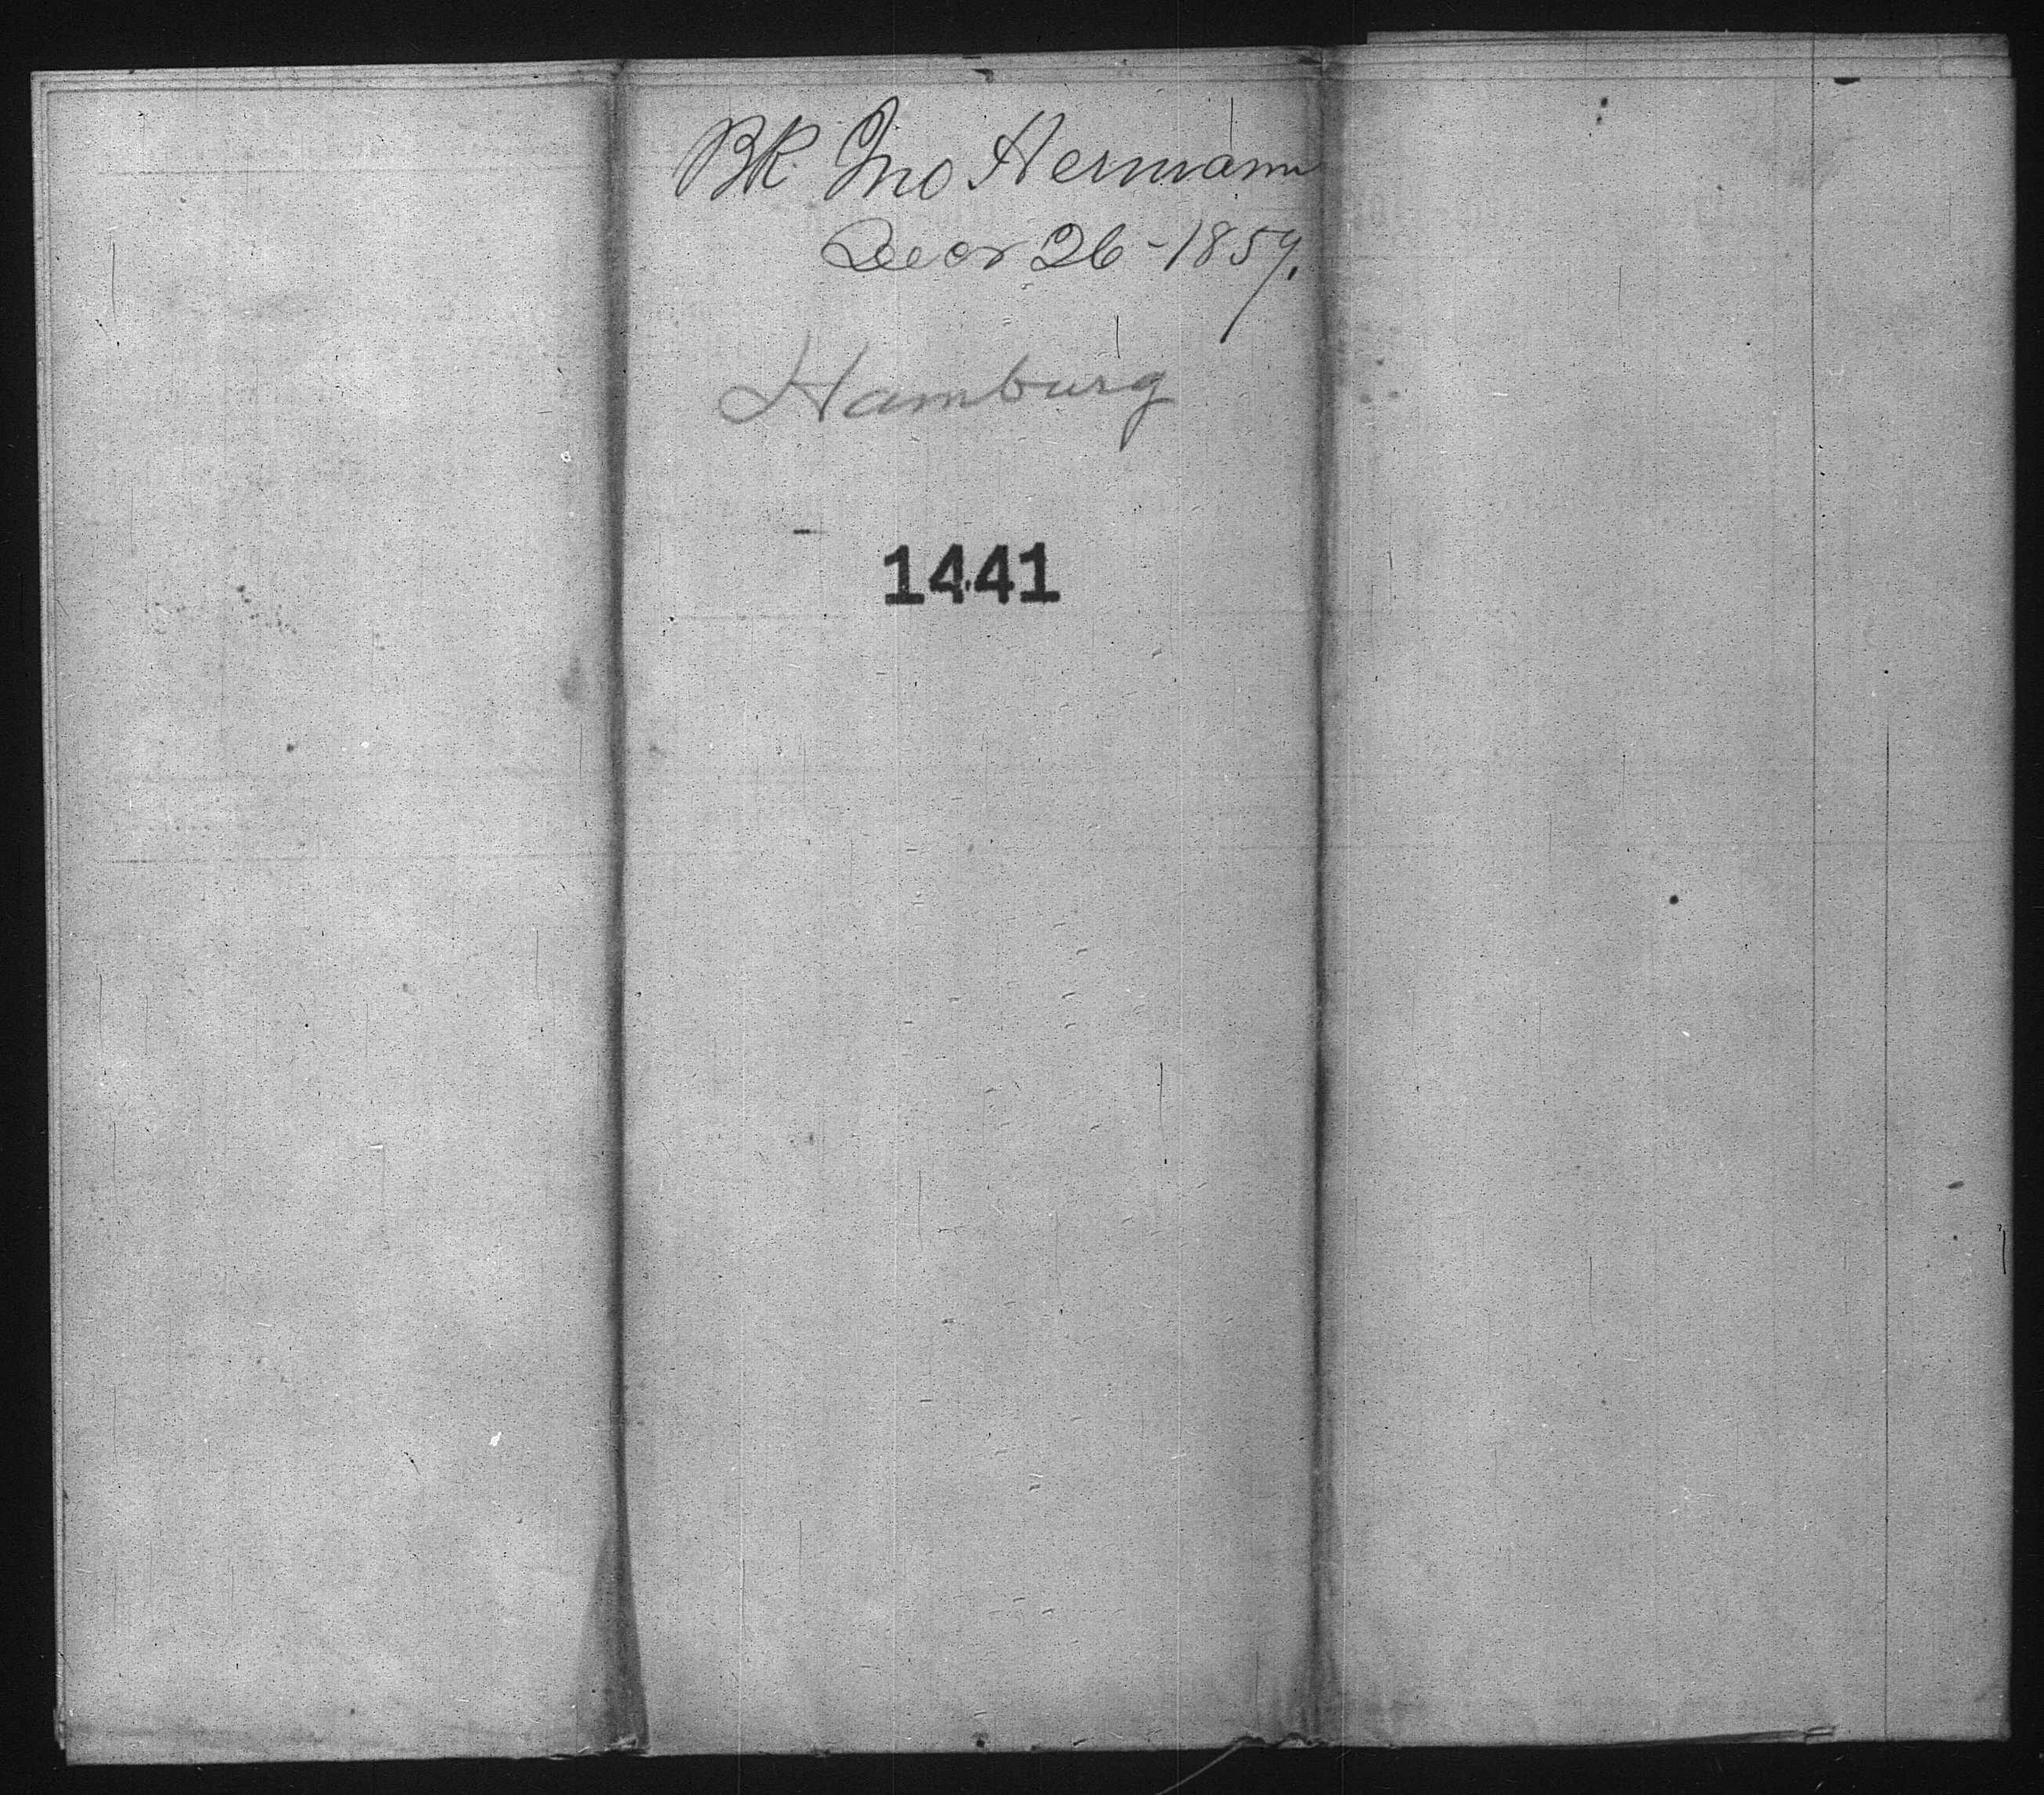 Bk Jno Hermann
Decr 26-1857.
Hamburg
1441